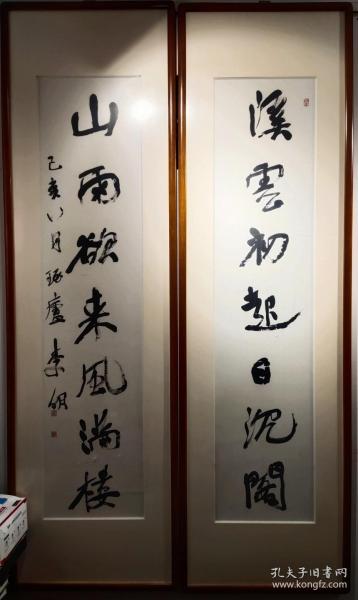 溪雲初起日沉閣
山雨欲来風満楼
己亥八月琢廬李明
孔夫子旧书网
www.kongfz.com